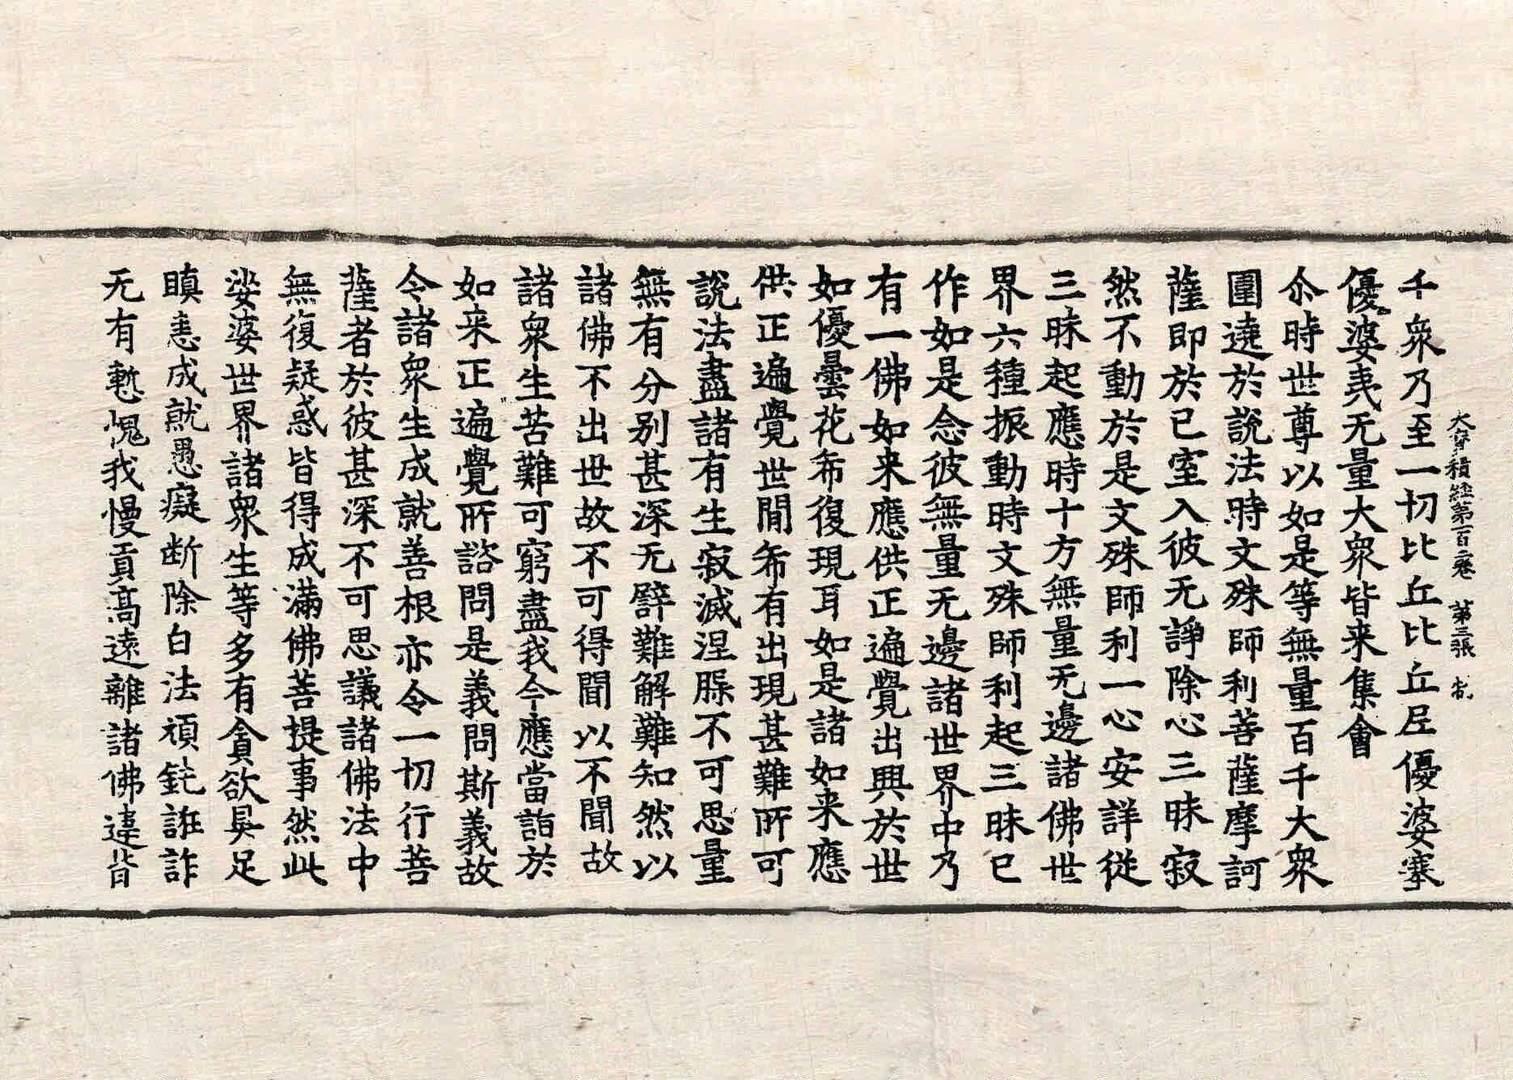 大寳積經第一百二卷 第三張 制
千衆乃至一切比丘比丘尼優婆塞
優婆夷无量大衆皆来集會
尒時世尊以如是等無量百千大衆
圍遶於說法時文殊師利菩薩摩訶
薩即於已室入彼无諍除心三昧寂
然不動於是文殊師利一心安詳従
三昧起應時十方無量无邊諸佛世
界六種振動時文殊師利起三昧已
作如是念彼無量无邊諸世界中乃
有一佛如来應供正遍覺出興於世
如優曇花希復現耳如是諸如来應
供正遍覺世間希有出現甚難所可
說法盡諸有生寂滅涅槃不可思量
無有分別甚深无辟難解難知然以
諸佛不出世故不可得聞以不聞故
諸衆生苦難可窮盡我今應當詣於
如来正遍覺所諮問是義問斯義故
令諸衆生成就善根亦令一切行菩
薩者於彼甚深不可思議諸佛法中
無復疑惑皆得成滿佛菩提事然此
娑婆世界諸衆生等多有貪欲具足
瞋恚成就愚癡断除白法頑鈍誑詐
无有慙愧我慢貢高遠離諸佛違背